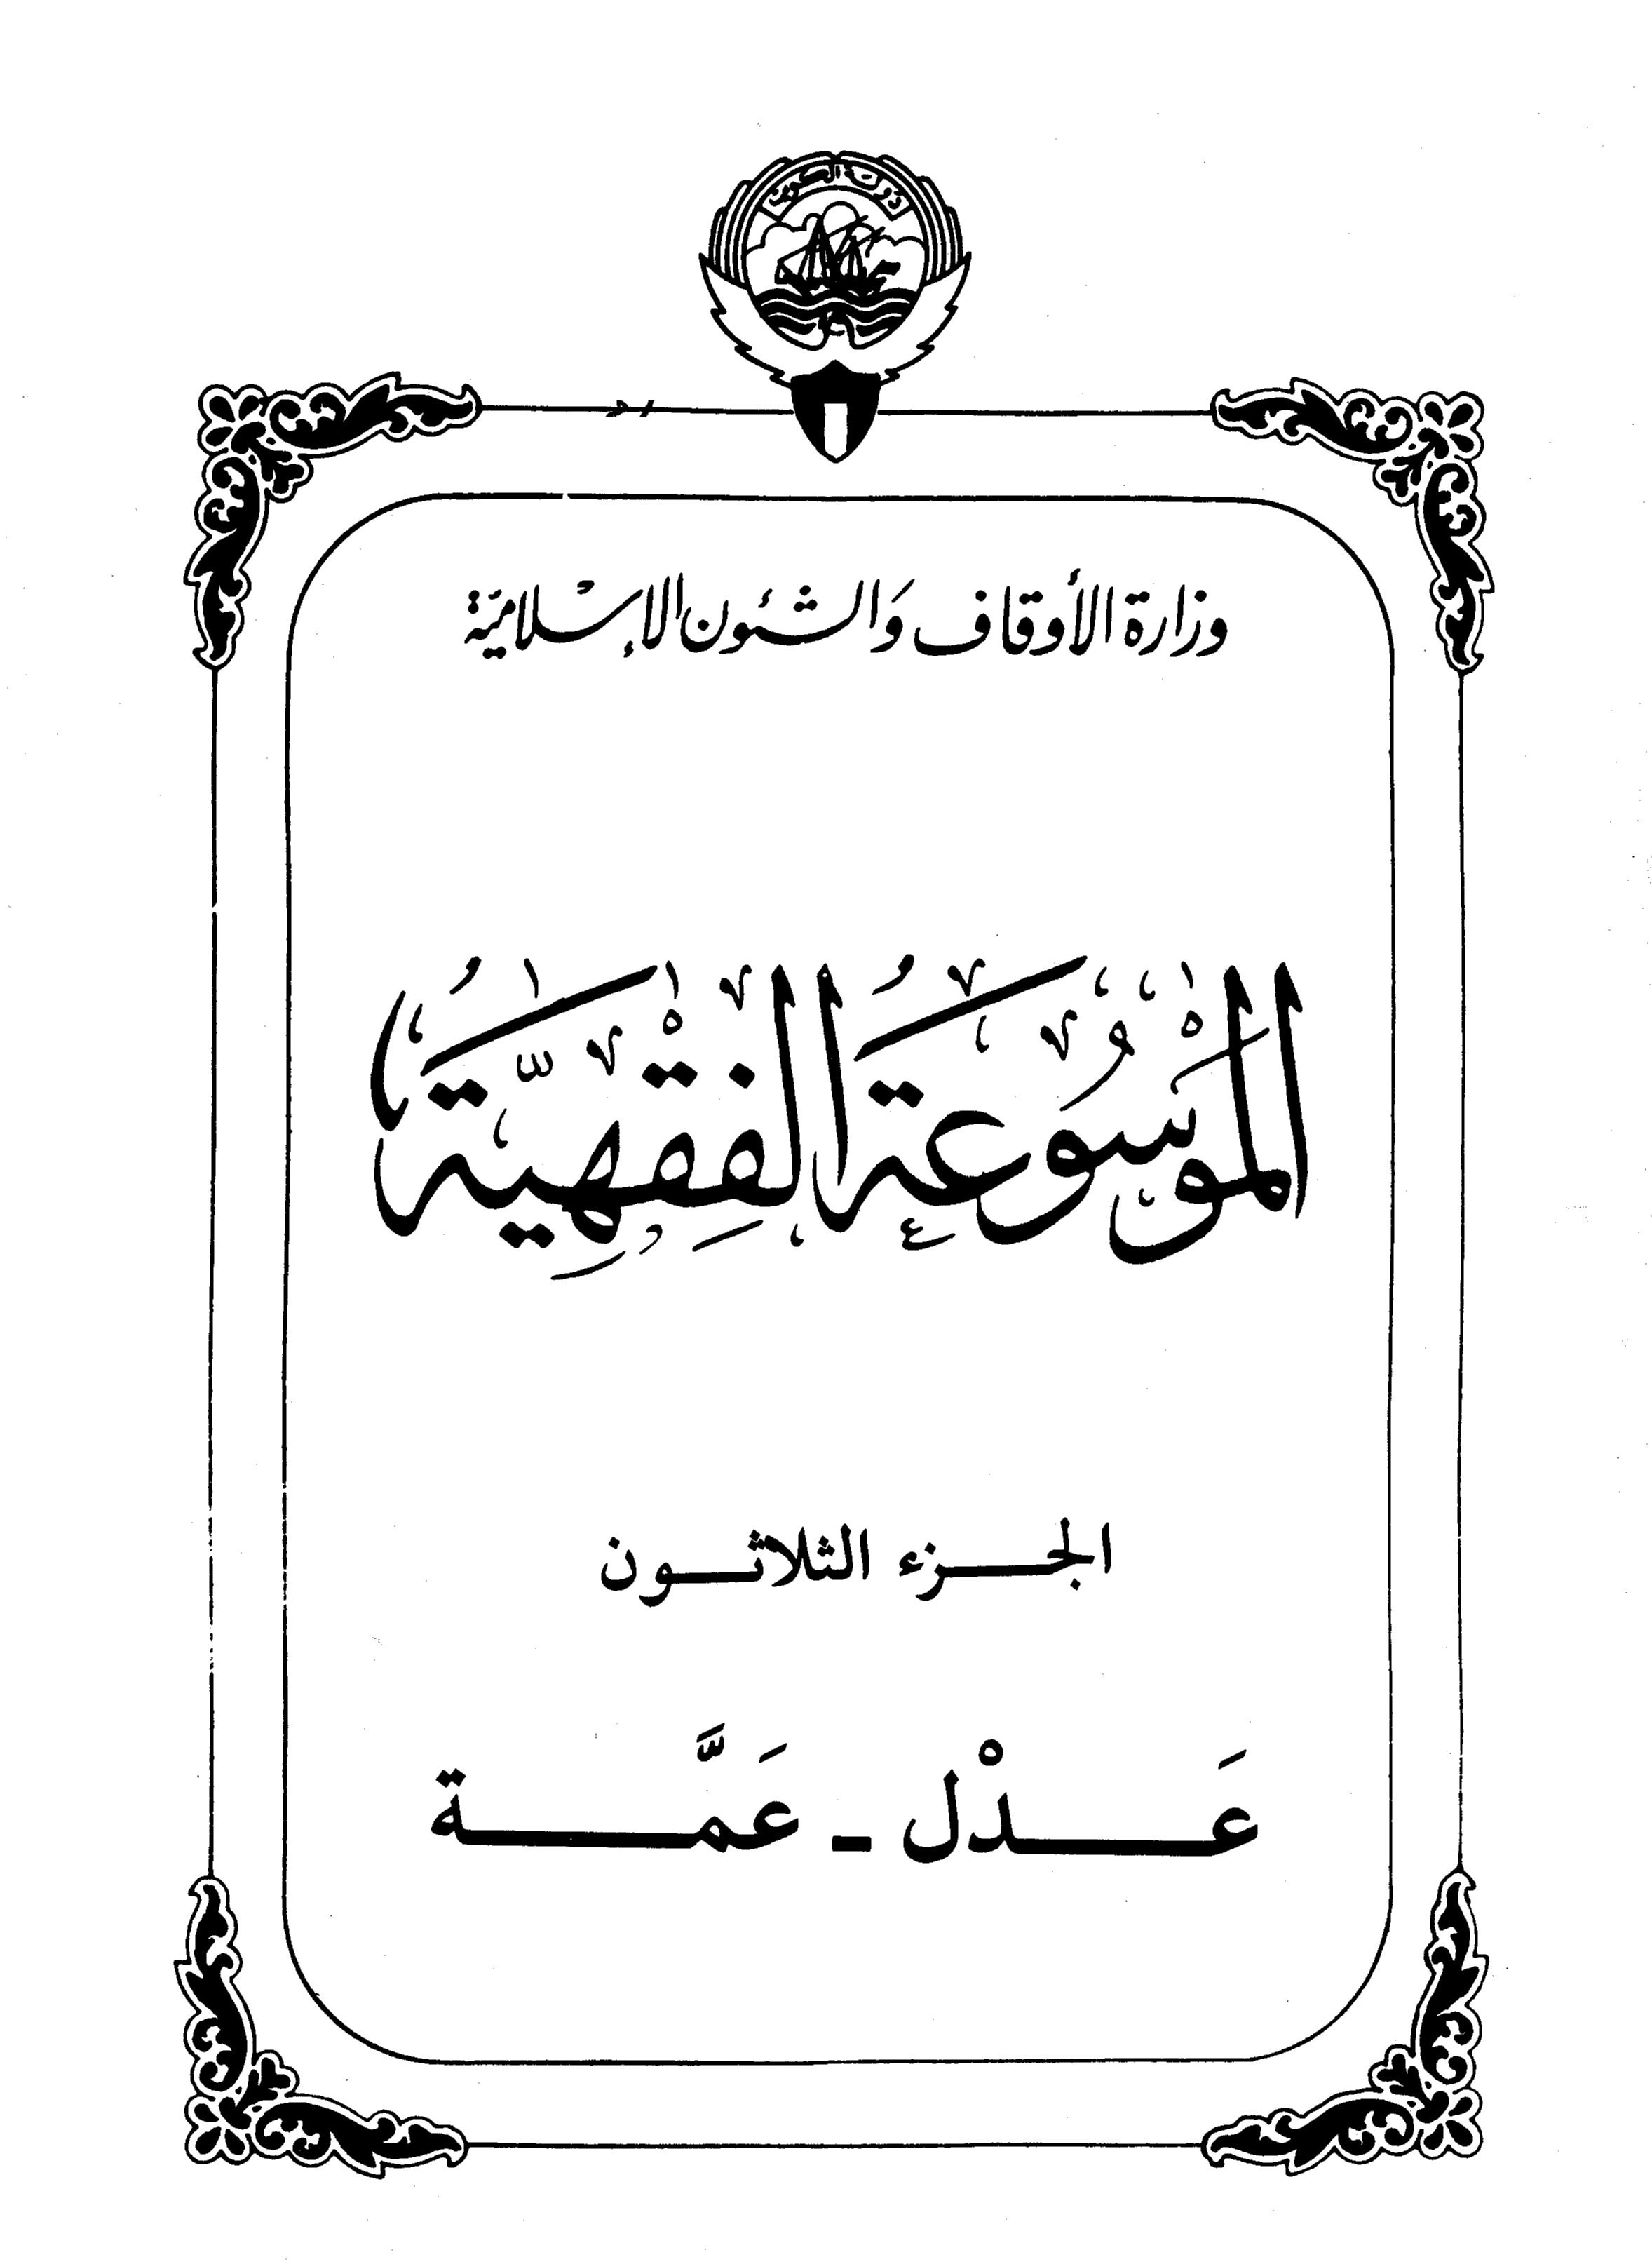 دولة الكويت
وزارة الأوقاف وَالشئون الإسْلاميّة
الموسُوعَة الفِقهيّة
الجزء الثلاثون
عَدْل - عَمَّة